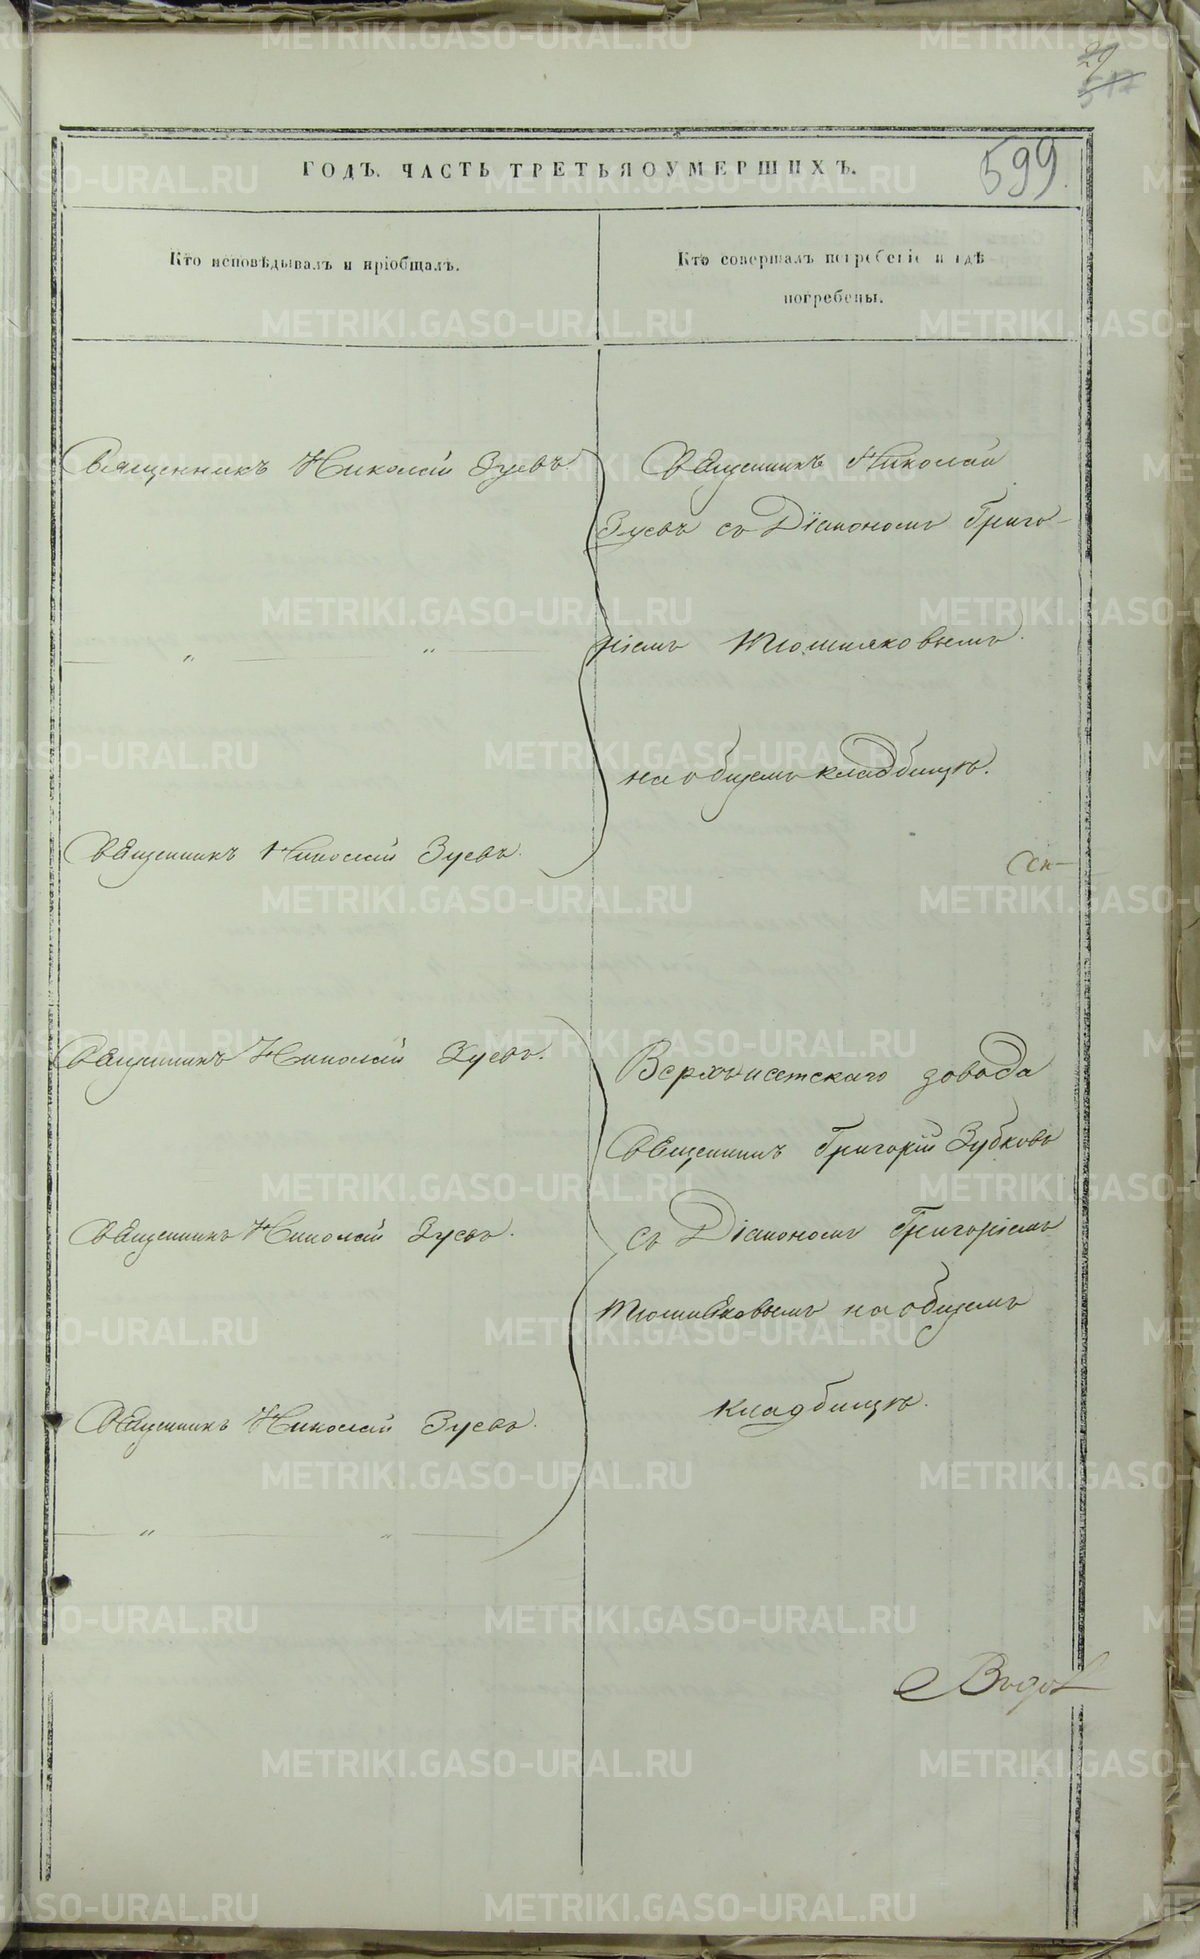 29
599
ГОДЪ. ЧАСТЬ ТРЕТЬЯ О УМЕРШИХЪ.
Кто исповѣдывалъ и пріобщалъ.
Кто совершалъ погребеніе и гдѣ
погребены.
Священникъ Николай Зуевъ
Священникъ Николай
Зуевъ съ Діакономъ Григо-
" "
ріемъ Тюшняковымъ.
на общемъ кладбищѣ.
Священникъ Николай Зуевъ.
Священникъ Николай Зуевъ.
Верхъ-исетскаго завода
Священникъ Григорій Зубковъ
Священникъ Николай Зуевъ.
съ Діакономъ Григоріемъ
Тюшняковымъ на общемъ
кладбищѣ.
Священникъ Николай Зуевъ.
" "
METRIKI.GASO-URAL.RU